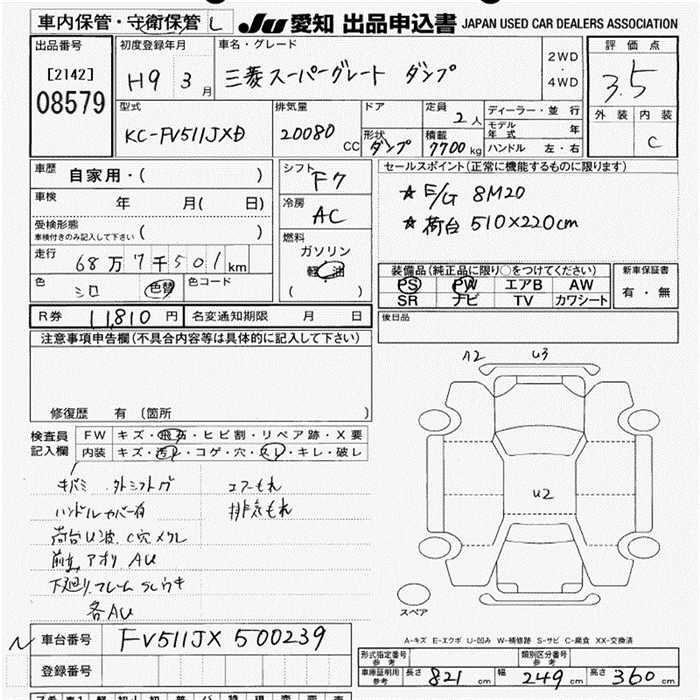 車内保管・守衛保管 L
JU 愛知 出品申込書 JAPAN USED CAR DEALERS ASSOCIATION
出品番号
[2142]
08579
初度登録年月
H9 3月
車名・グレード
三菱スーパーグレート ダンプ
2WD
・
4WD
評価点
3.5
外装 内装
C
型式
KC-FV511JXD
排気量
20080 CC
ドア
形状
ダンプ
定員
2人
積載
7700 kg
ディーラー・並行
モデル年式 年
ハンドル 左・右
車歴 自家用・( )
車検 年 月( 日)
受検形態
車検付きのみ記入して下さい ( )
走行 68万7千501km
色 シロ 色替 色コード
シフト
F7
冷房
AC
燃料
ガソリン
軽・油
( )
セールスポイント(正常に機能するものに限ります)
★ E/G 8M20
★ 荷台 510×220cm
装備品(純正品に限り○をつけてください)
PS PW エアB AW
SR ナビ TV カワシート
新車保証書
有・無
R券 11,810円 名変通知期限 月 日
後日品
注意事項申告欄(不具合内容等は具体的に記入して下さい)
修復歴 有 (箇所 )
検査員記入欄
FW キズ・飛石・ヒビ割・リペア跡・X要
内装 キズ・汚れ・コゲ・穴・スレ・キレ・破レ
キバミ 外シフトグ エアーもれ
ハンドルカバー有 排気もれ
荷台U波、C穴メクレ
アオリ AU
下廻りフレーム
各AU
A2 U3
U2
スペア
A-キズ E-エクボ U-凹み W-補修跡 S-サビ C-腐食 XX-交換済
N 車台番号 FV511JX 500239
登録番号
形式指定番号
参考
類別区分番号
参考
車庫証明用
参考
長さ 821 cm 幅 249 cm 高さ 360 cm